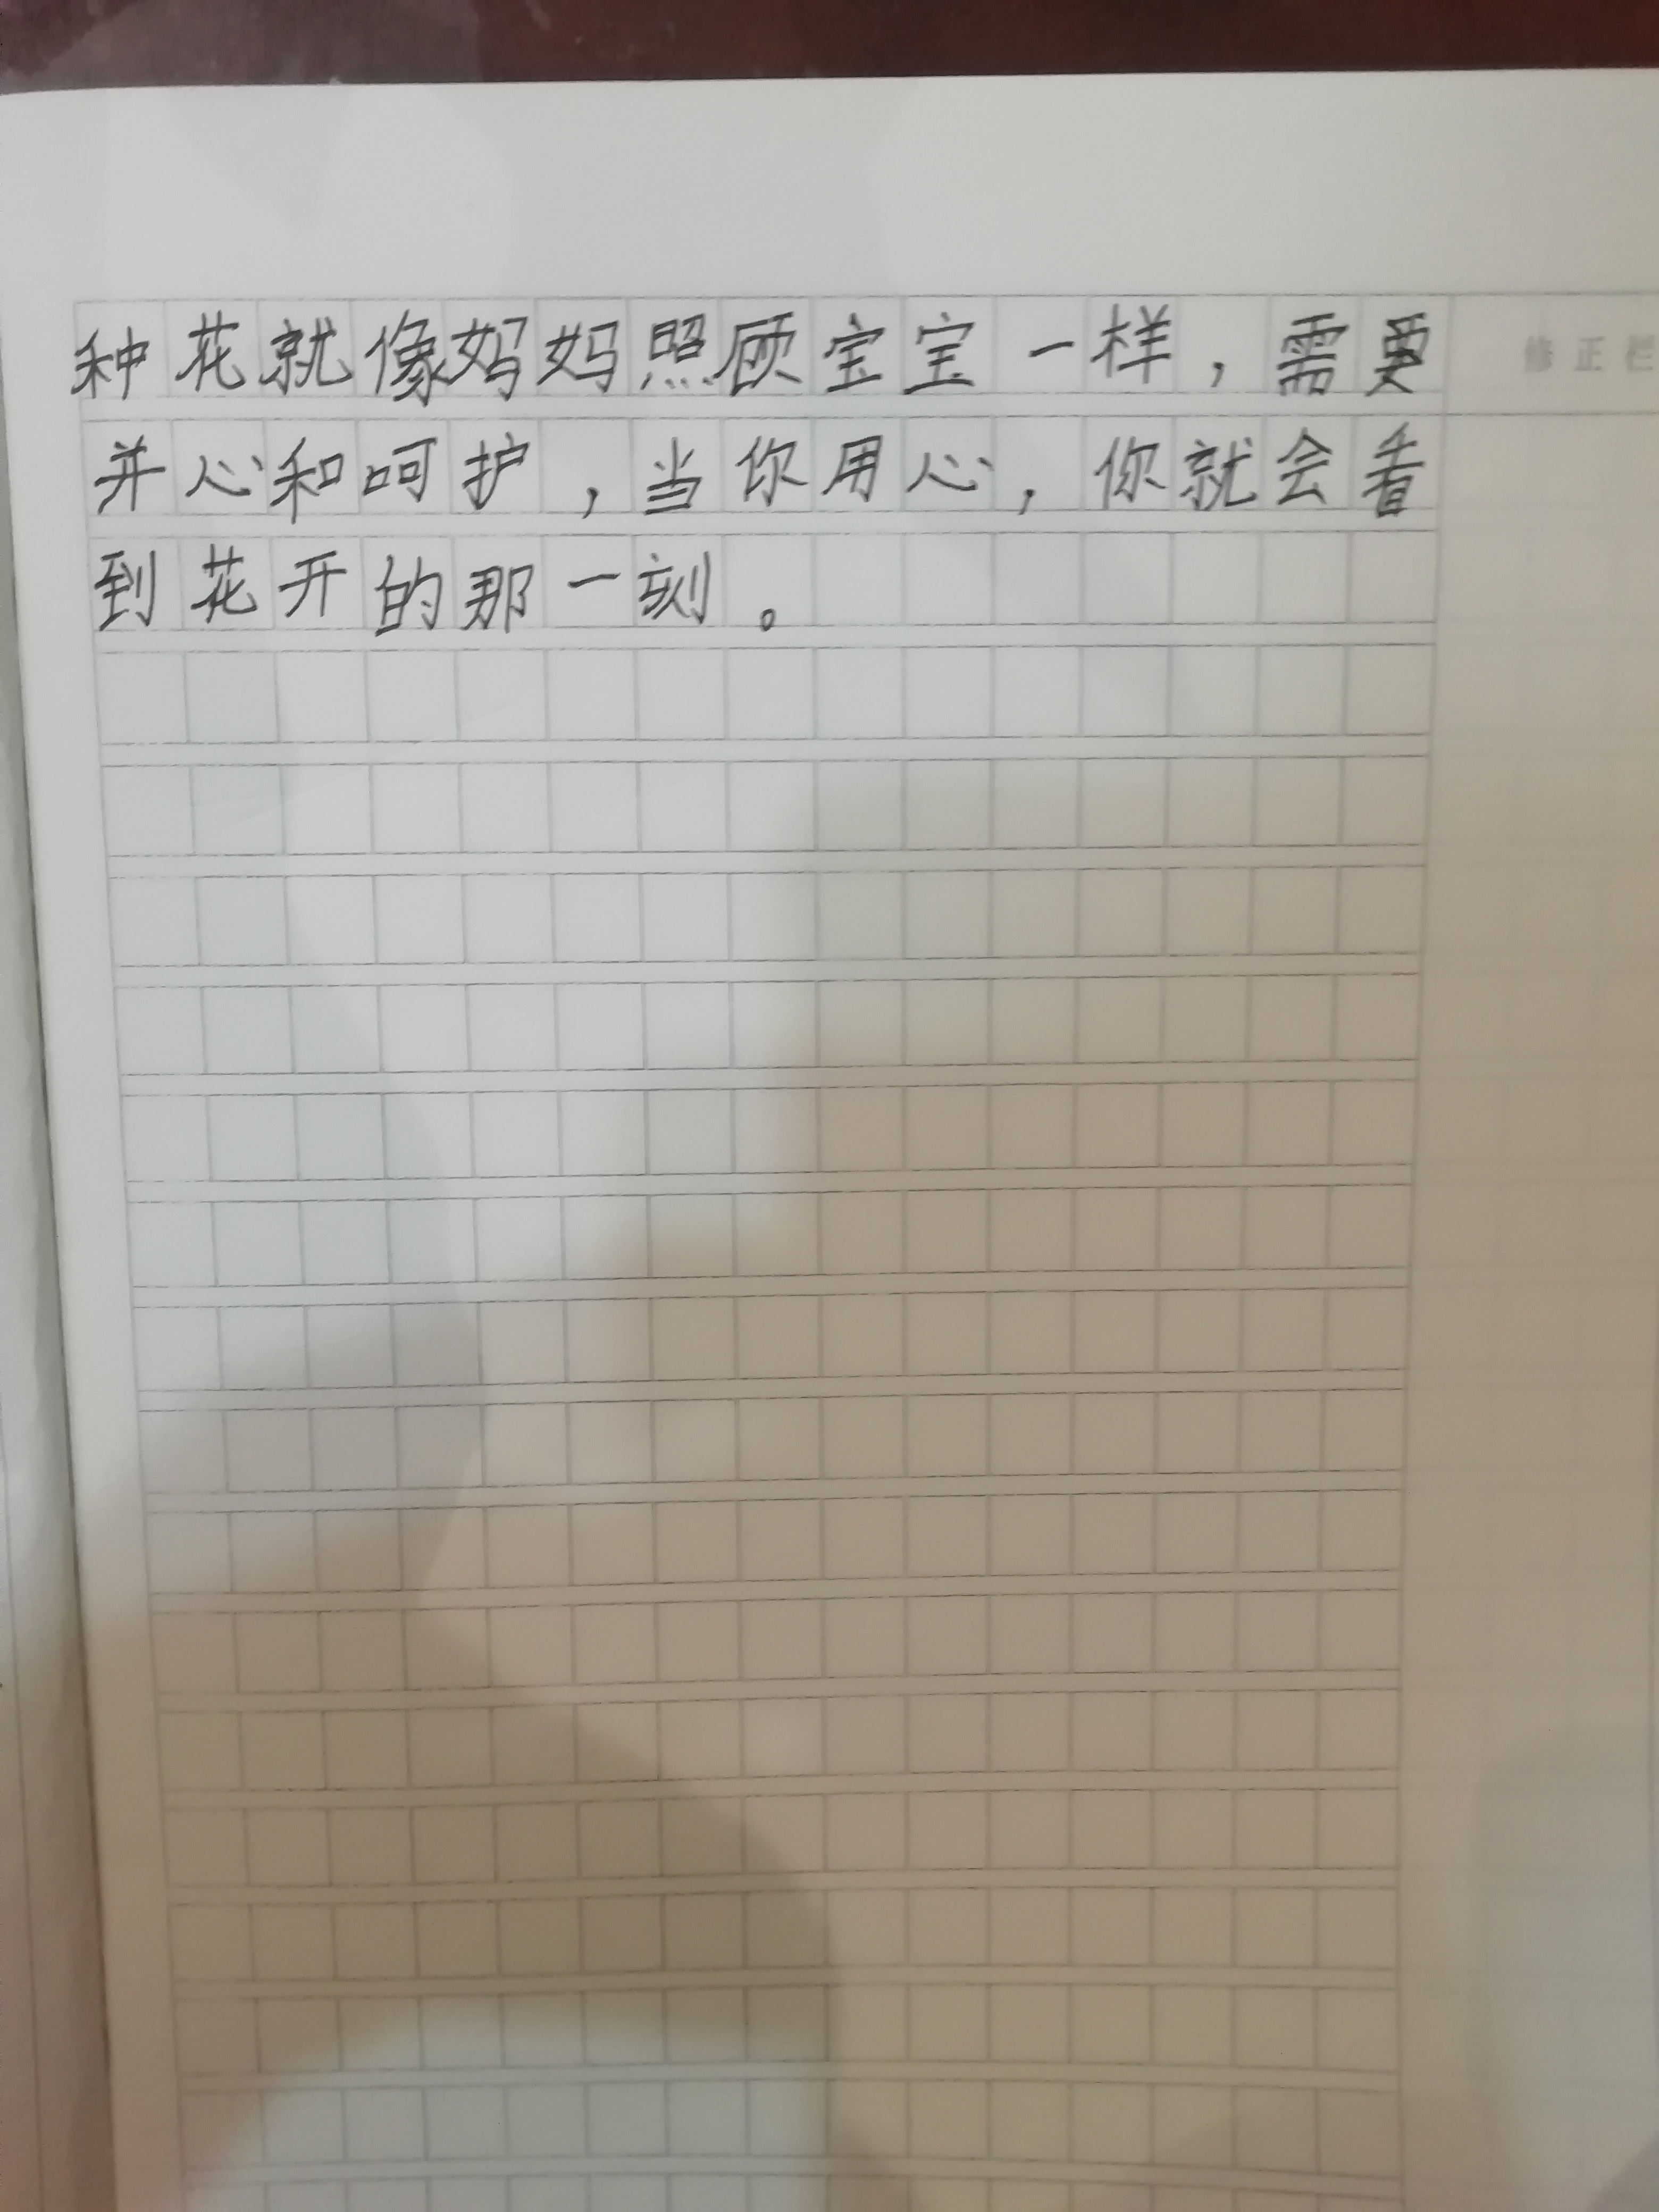 种花就像妈妈照顾宝宝一样，需要
并心和呵护，当你用心，你就会看
到花开的那一刻。
修正栏